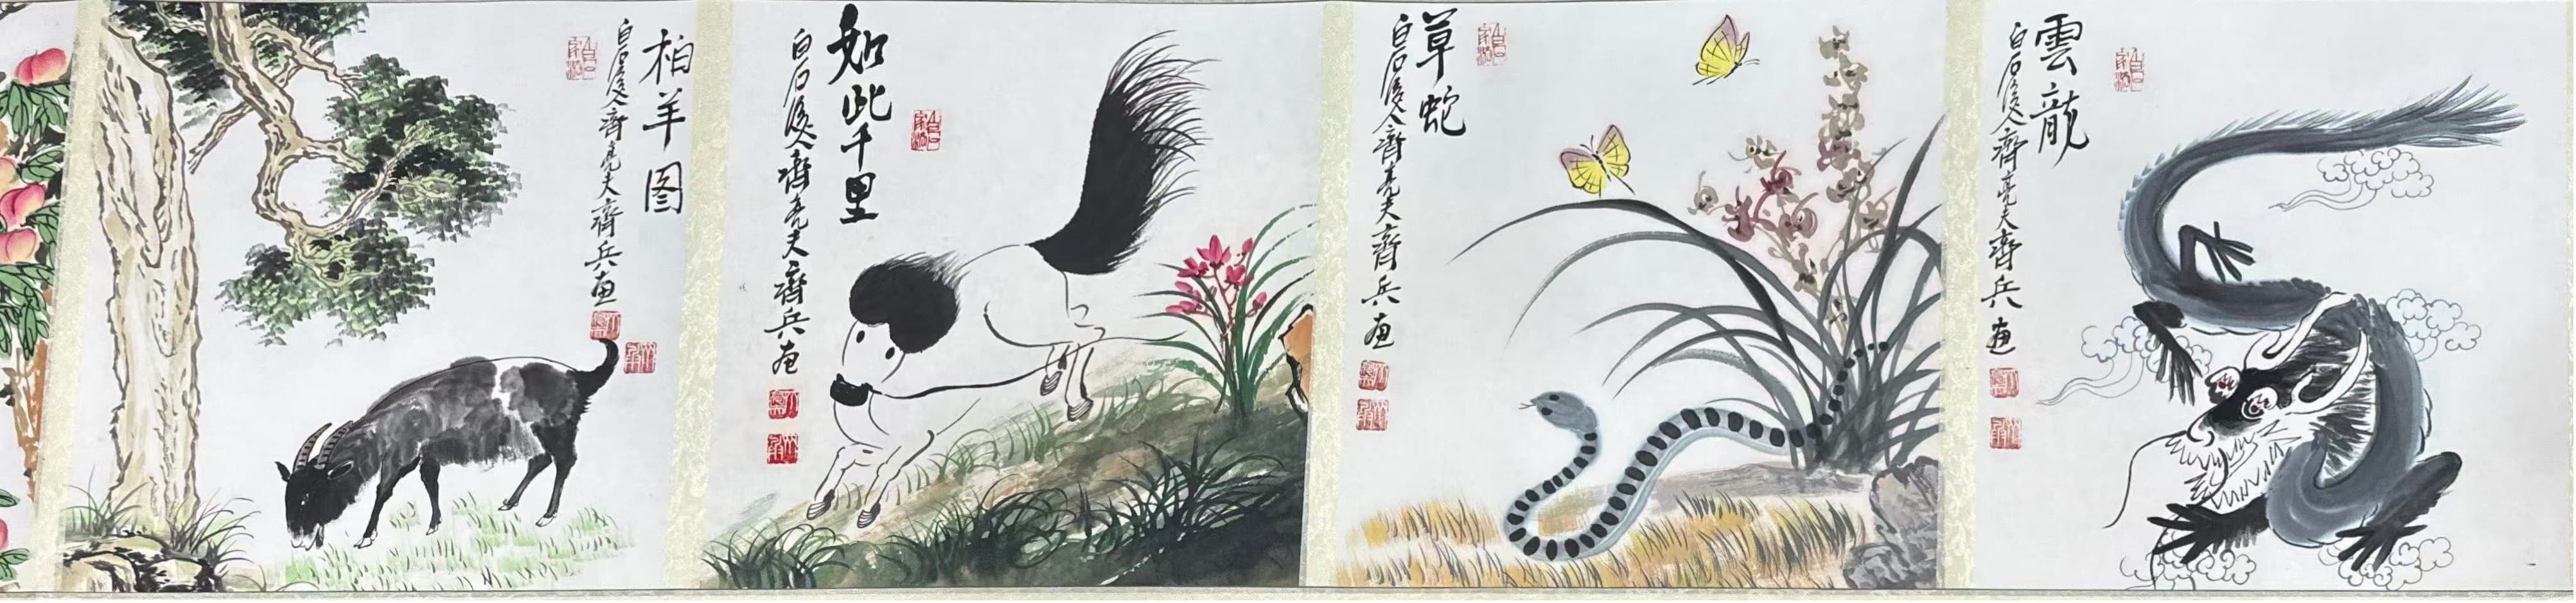 雲龍
白石後人齊亮夫齊兵画
草蛇
白石後人齊亮夫齊兵画
如此千里
白石後人齊亮夫齊兵画
柏羊图
白石後人齊亮夫齊兵画